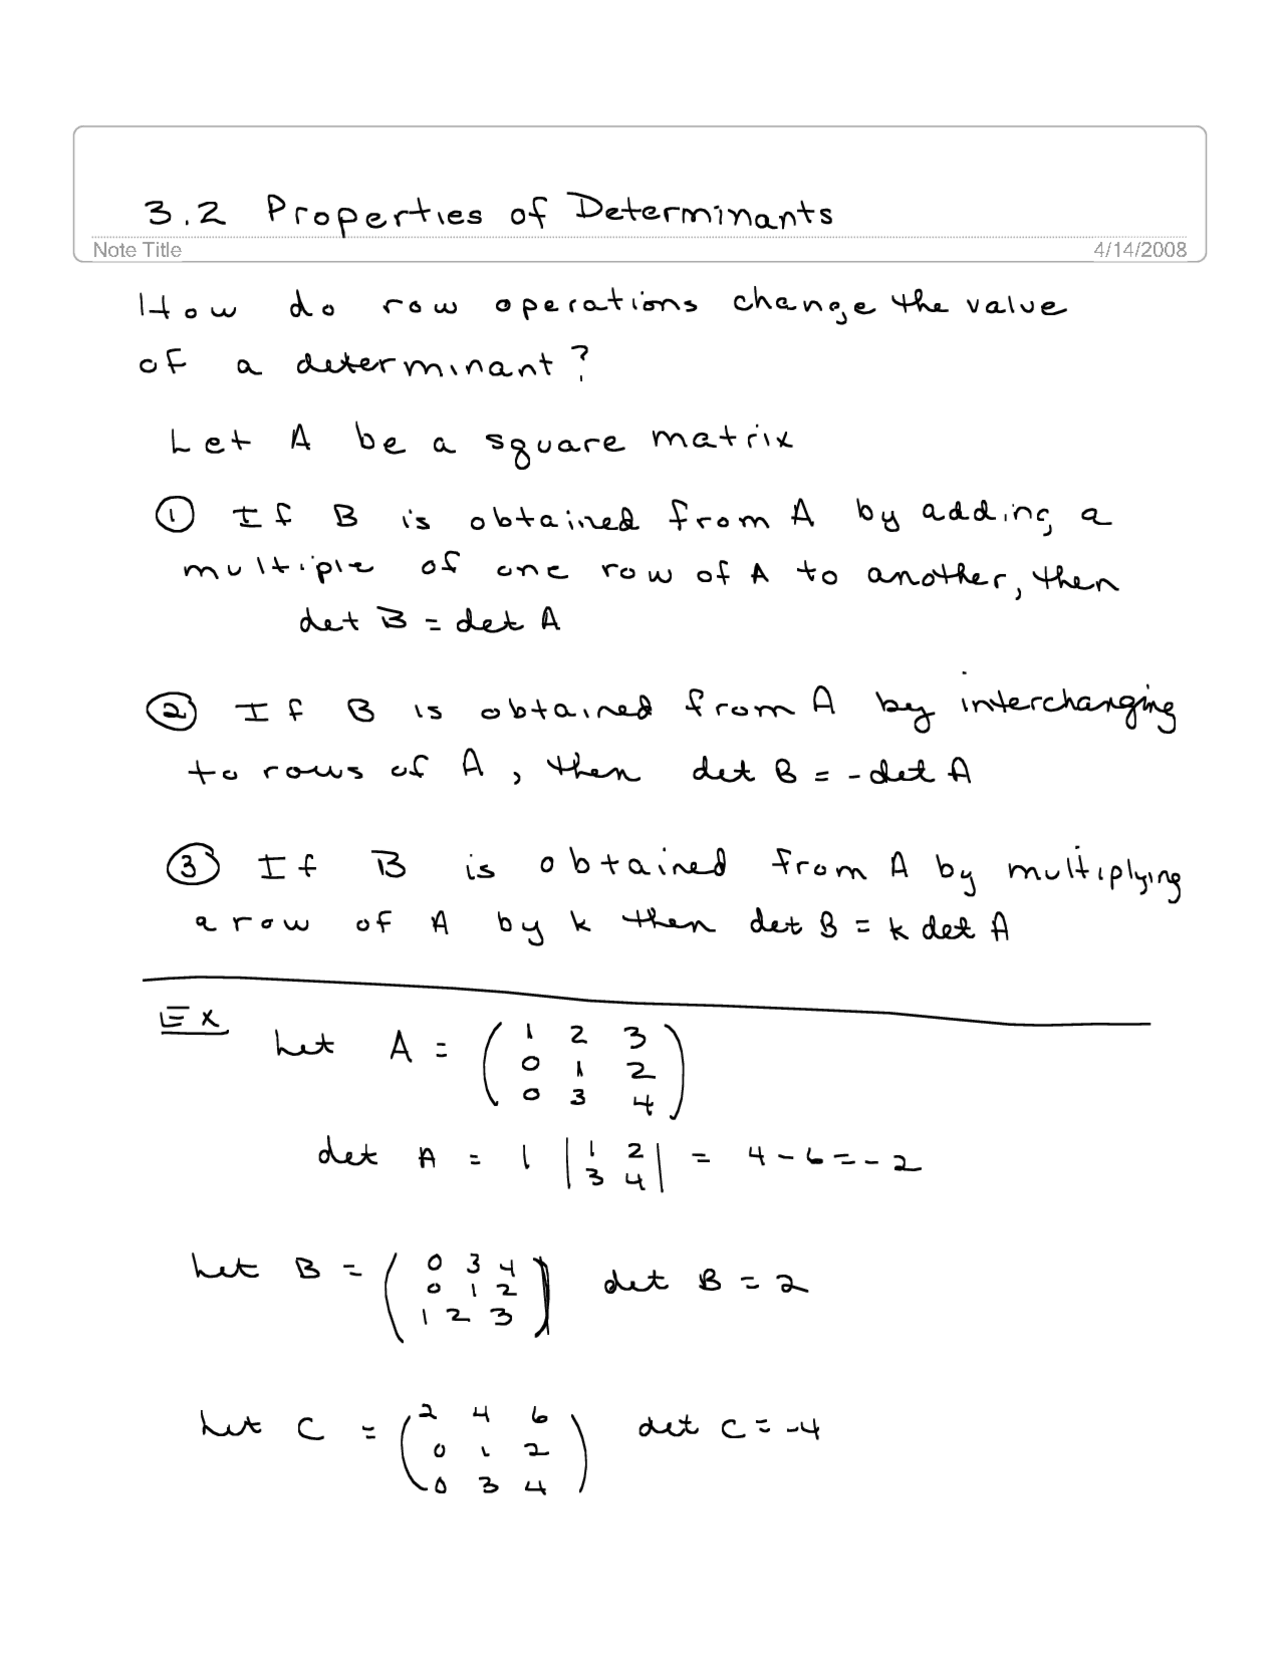 3.2 Properties of Determinants
Note Title 4/14/2008
How do row operations change the value
of a determinant?
Let A be a square matrix
① If B is obtained from A by adding a
multiple of one row of A to another, then
det B = det A
② If B is obtained from A by interchanging
to rows of A, then det B = -det A
③ If B is obtained from A by multiplying
a row of A by k then det B = k det A
Ex
Let A = ( 1 2 3
0 1 2
0 3 4 )
det A = 1 | 1 2
3 4 | = 4 - 6 = - 2
Let B = ( 0 3 4
0 1 2
1 2 3 ) det B = 2
Let C = ( 2 4 6
0 1 2
0 3 4 ) det C = -4